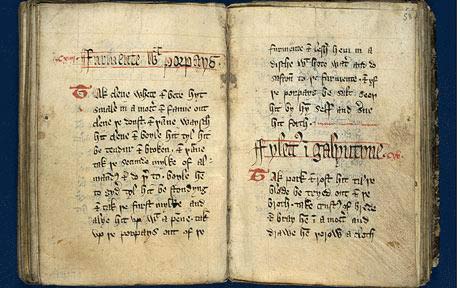 Furmente wt porpays
Tak clene whete & bete hyt
small in a mort & fanne out
clene ye doust & yanne waysch
hit clene & boyle hit tyl hit
be tendur & broken. & yanne
tak ye secunde mylke of al
& do yto. boyle he
to gyd tyl hit be stondyng
& tak ye furst mylke and
alye hit up wt a penne. tak
up ye porpays out of ye
furmente & lesh hem in a
disshe wt hote wat and do
safron to ye furmente. & yf
ye porpays be salt. seey
hit by hym self and sue
hit forth.
Fylett i galyntyne
Tak pork & rost hit til ye
blode be tryed out & ye
broth. take crust of brede
& bray hem i a mort and
drawe hem yorow a cloth